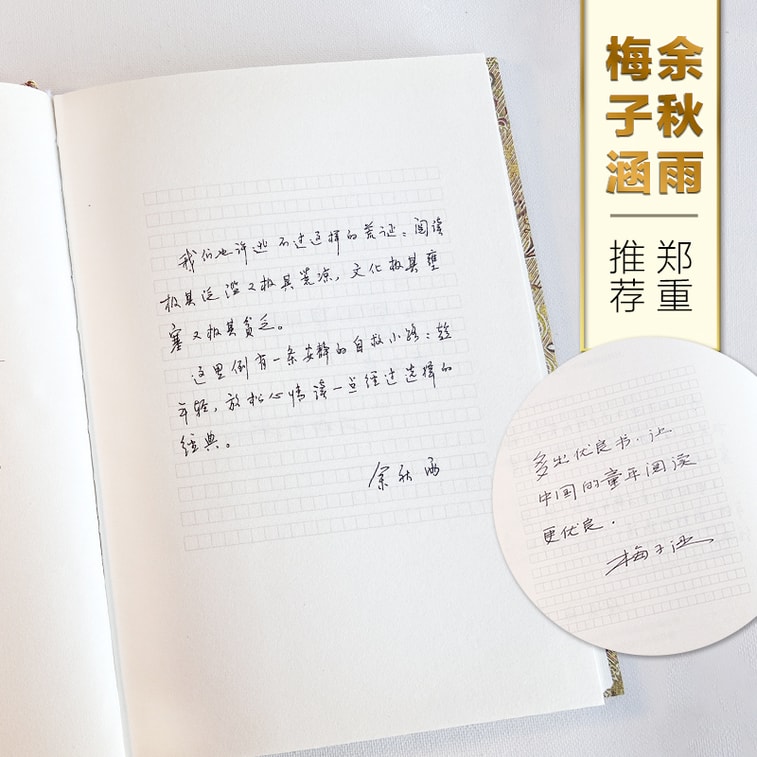 余秋雨
梅子涵
郑重
推荐
我们也许逃不过这样的荒诞：阅读
极其泛滥又极其荒凉，文化极其壅
塞又极其贫乏。
这里倒有一条安静的自救小路：趁
年轻，放松心情读一点经过选择的
经典。
余秋雨
多出优良书，让
中国的童年阅读
更优良.
梅子涵